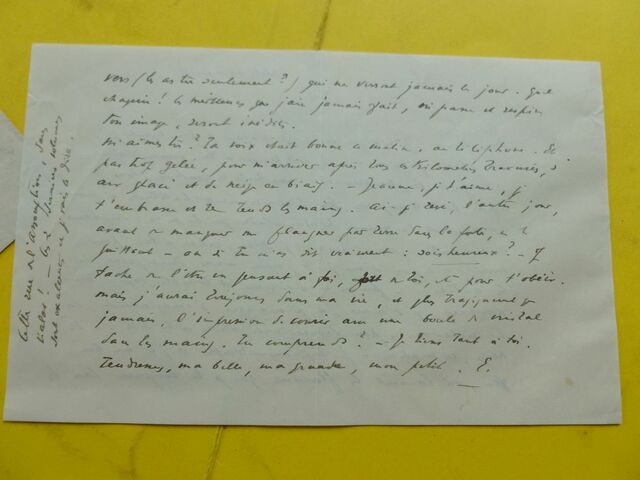 vers (les as-tu seulement ?) qui ne verront jamais le jour. Quel
chagrin ! les meilleurs que j'aie jamais fait, où passe et respire
ton image, seront inédits.
M'aimes-tu ? Ta voix était bonne ce matin, au téléphone. Et
pas trop gelée, pour m'arriver après tous ces kilomètres traversés, d'
air glacé et de neige en biais. — Jeanne, je t'aime, je
t'embrasse et te tends les mains. Ai-je rêvé, l'autre jour,
avant de manquer me flanquer par terre dans la forêt, en te
quittant — ou si tu m'as dit vraiment : sois heureux ? — Je
tâche de l'être en pensant à toi, à toi, et pour t'obéir.
mais j'aurai toujours dans ma vie, et plus tragiquement que
jamais, l'impression de courir avec une boule de cristal
dans les mains. Tu comprends ? — Je tiens tant à toi.
Tendresses, ma belle, ma grande, mon petit. E.
Cette rue de l'Assomption, dans
hélas ! — les 2 derniers
sont excellents et je vais te dire.